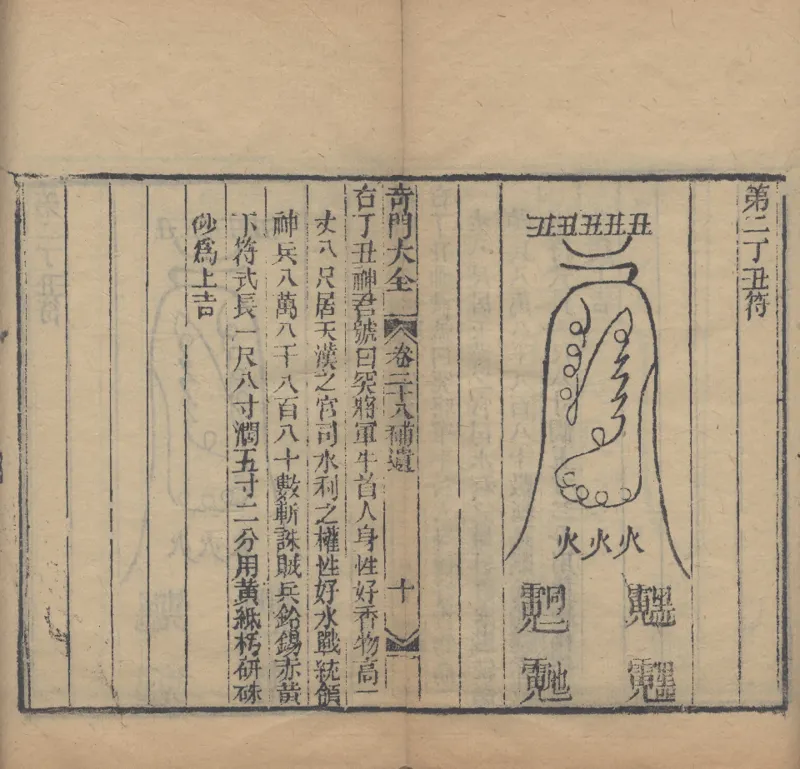 第二丁丑符
丑丑丑丑丑
火火火
奇門大全 卷二十八補遺 十
右丁丑神君號曰突將軍牛首人身性好香物高一
丈八尺居天漢之官司水利之權性好水戰統領
神兵八萬八千八百八十數斬誅賊兵鉛錫赤黃
下符式長一尺八寸濶五寸二分用黃紙朽研硃
砂爲上吉